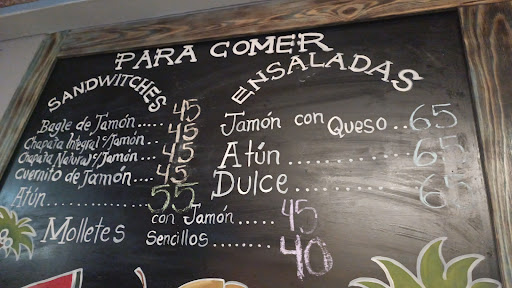 PARA COMER
SANDWITCHES
Bagle de Jamón.. 45
Chapata Integral c/Jamón.. 45
Chapata Natural c/Jamón.... 45
Cuernito de Jamón.... 45
Atún .................. 55
ENSALADAS
Jamón con Queso .. 65
Atún ............... 65
Dulce ............... 65
Molletes
con Jamón ..... 45
Sencillos ....... 40